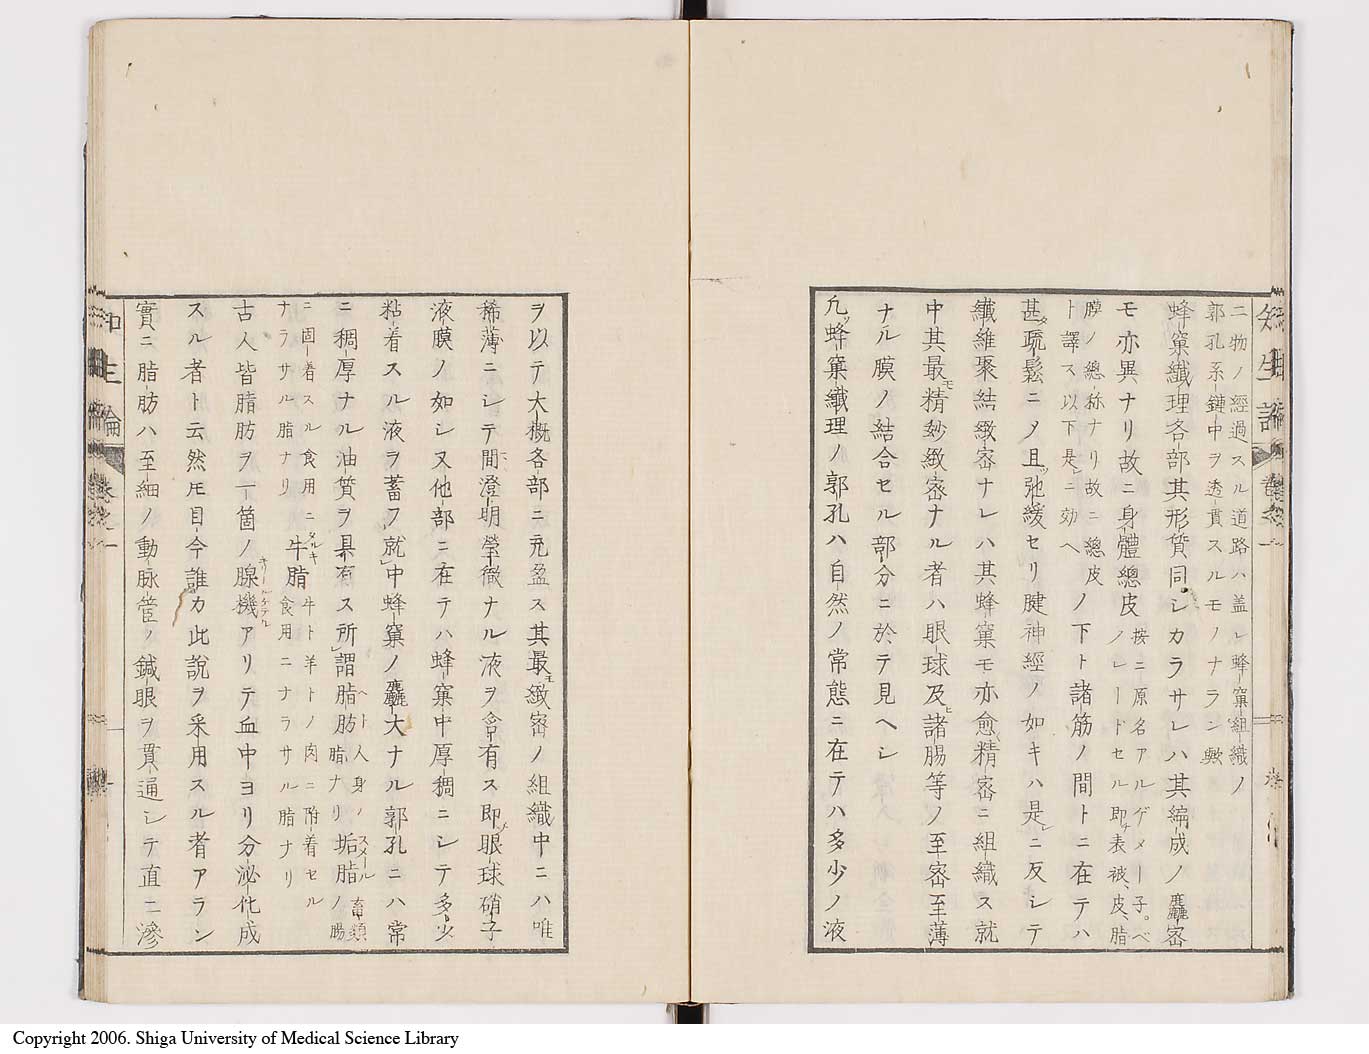 ニ物ノ經過スル道路ハ盖シ蜂窠組織ノ
郭孔系鏈中ヲ透貫スルモノナラン歟
蜂窠纖理各部其形質同シカラサレハ其編成ノ麤密
モ亦異ナリ故ニ身體總皮按ニ原名アルゲメー子。ベ
ノレードセル即チ表被、皮、脂
膜ノ總称ナリ故ニ總皮
ト譯ス以下是ニ効ヘノ下ト諸筋ノ間トニ在テハ
甚タ疏鬆ニメ且ツ弛緩セリ腱神經ノ如キハ是ニ反シテ
纖維聚結緻密ナレハ其蜂窠モ亦愈精密ニ組織ス就
中其最モ精妙緻密ナル者ハ眼球及ヒ諸膓等ノ至密至薄
ナル膜ノ結合セル部分ニ於テ見ヘシ
凡ソ蜂窠纖理ノ郭孔ハ自然ノ常態ニ在テハ多少ノ液
ヲ以テ大概各部ニ充盈ス其最モ緻密ノ組織中ニハ唯
稀薄ニシテ間澄明瑩徹ナル液ヲ含有ス即チ眼球硝子
液膜ノ如シ又他部ニ在テハ蜂窠中厚稠ニシテ多少
粘着スル液ヲ蓄フ就中蜂窠ノ麤大ナル郭孔ニハ常
ニ稠厚ナル油質ヲ具有ス所謂脂肪ヘト人身ノ
脂ナリ垢脂スメール畜類
ノ膓
ニ固着スル食用ニ
ナラサル脂ナリ牛脂タルキ牛ト羊トノ肉ニ附着セル
食用ニナラサル脂ナリ
古人皆脂肪ヲ一箇ノ腺機アリテ血中ヨリ分泌化成
スル者ト云然𪜈目今誰カ此說ヲ采用スル者アラン
實ニ脂肪ハ至細ノ動脉管ノ鍼眼ヲ貫通シテ直ニ滲
Copyright 2006. Shiga University of Medical Science Library